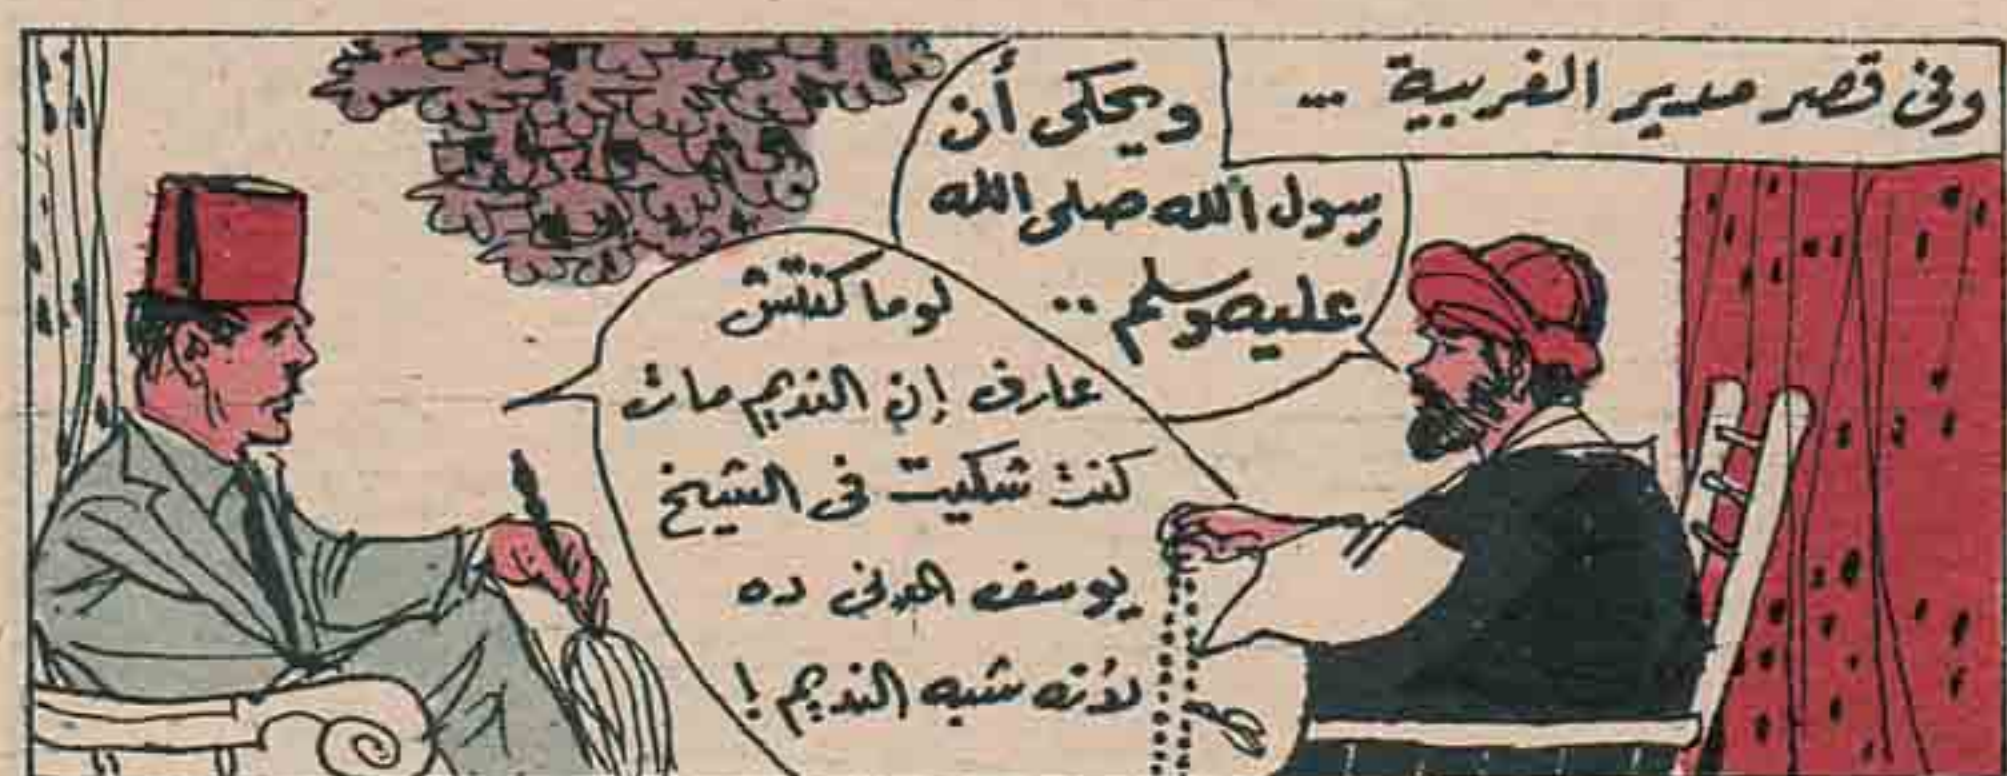 وفى قصر مدير الغربية ...
ويحكى أن
رسول الله صلى الله
عليه وسلم ..
لو ما كنتش
عارف إن النديم مات
كنت شكيت فى الشيخ
يوسف المدنى ده
لأنه شبه النديم !